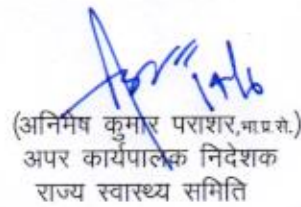 14/6
(अनिमेष कुमार पराशर,भा.प्र.से.)
अपर कार्यपालक निदेशक
राज्य स्वास्थ्य समिति